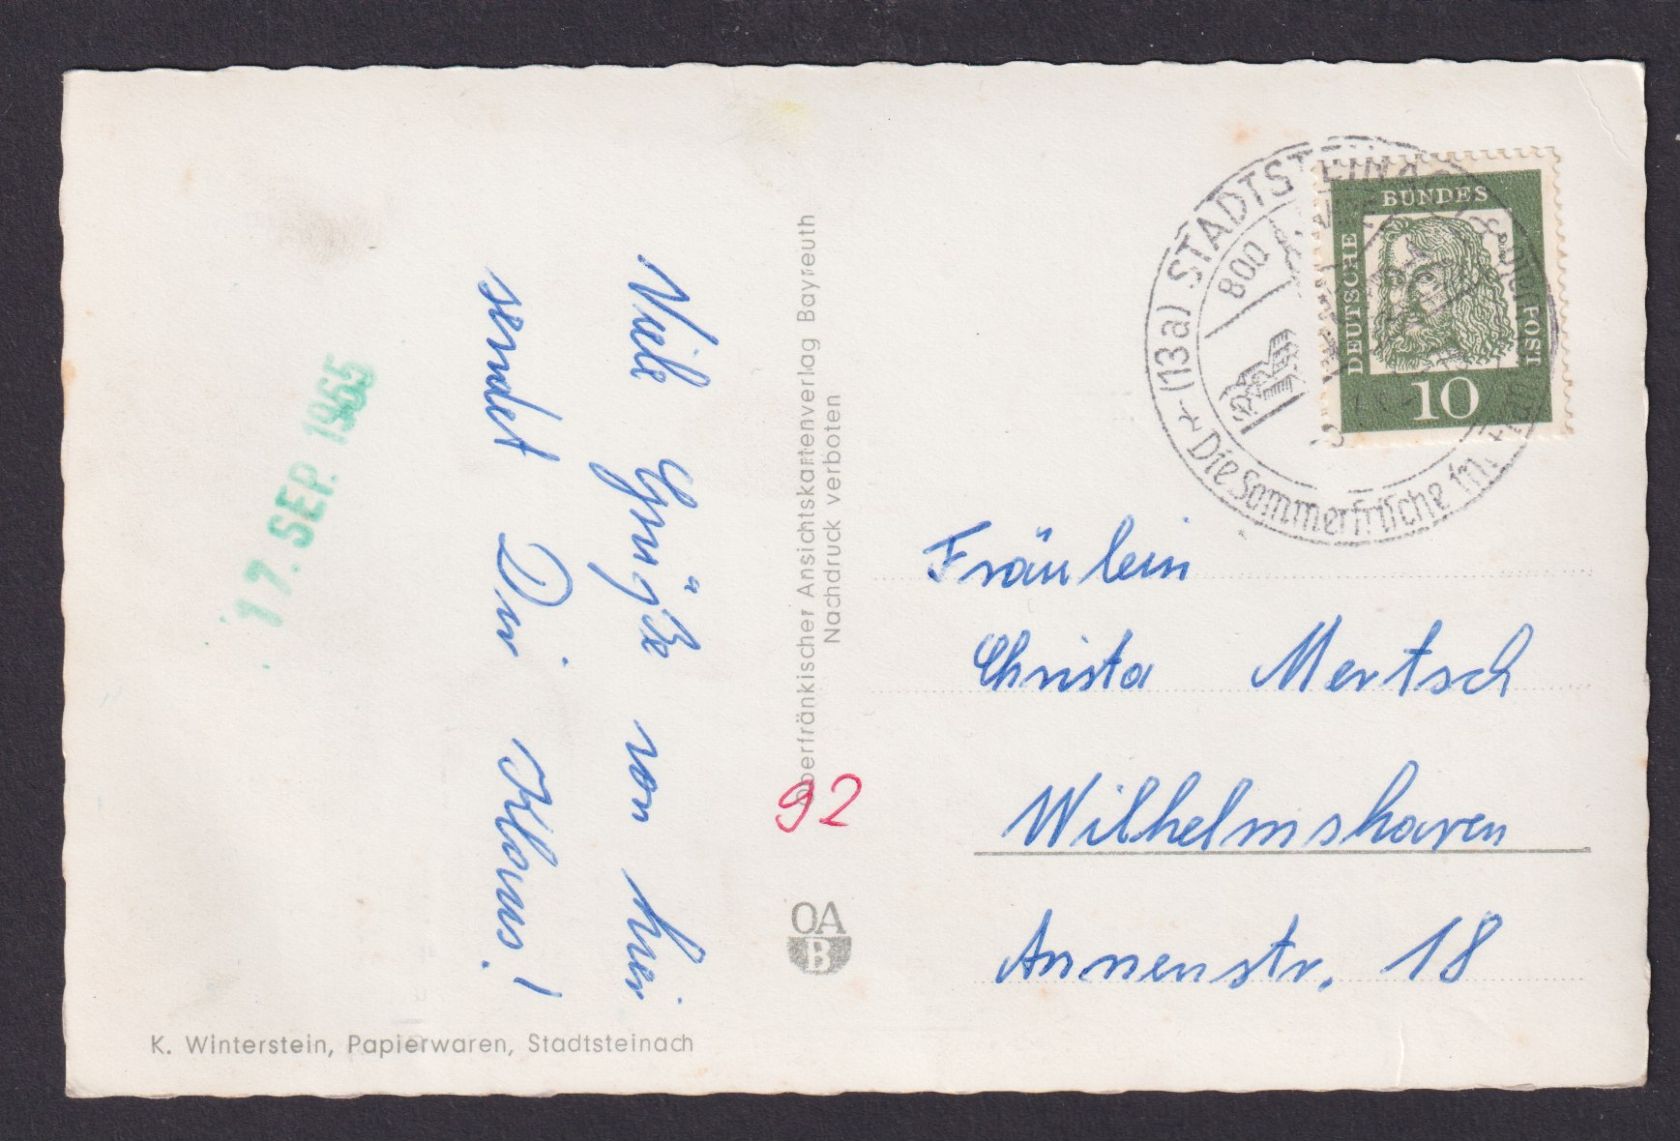 17. SEP. 1965
Viele Grüße von hier
sendet Dir Klaus!
K. Winterstein, Papierwaren, Stadtsteinach
Oberfränkischer Ansichtskartenverlag Bayreuth
Nachdruck verboten
92
OA
B
(13a) STADTSTEINACH
800
Die Sommerfrische im
DEUTSCHE
BUNDES
POST
10
Fräulein
Christa Mertsch
Wilhelmshaven
Annenstr. 18